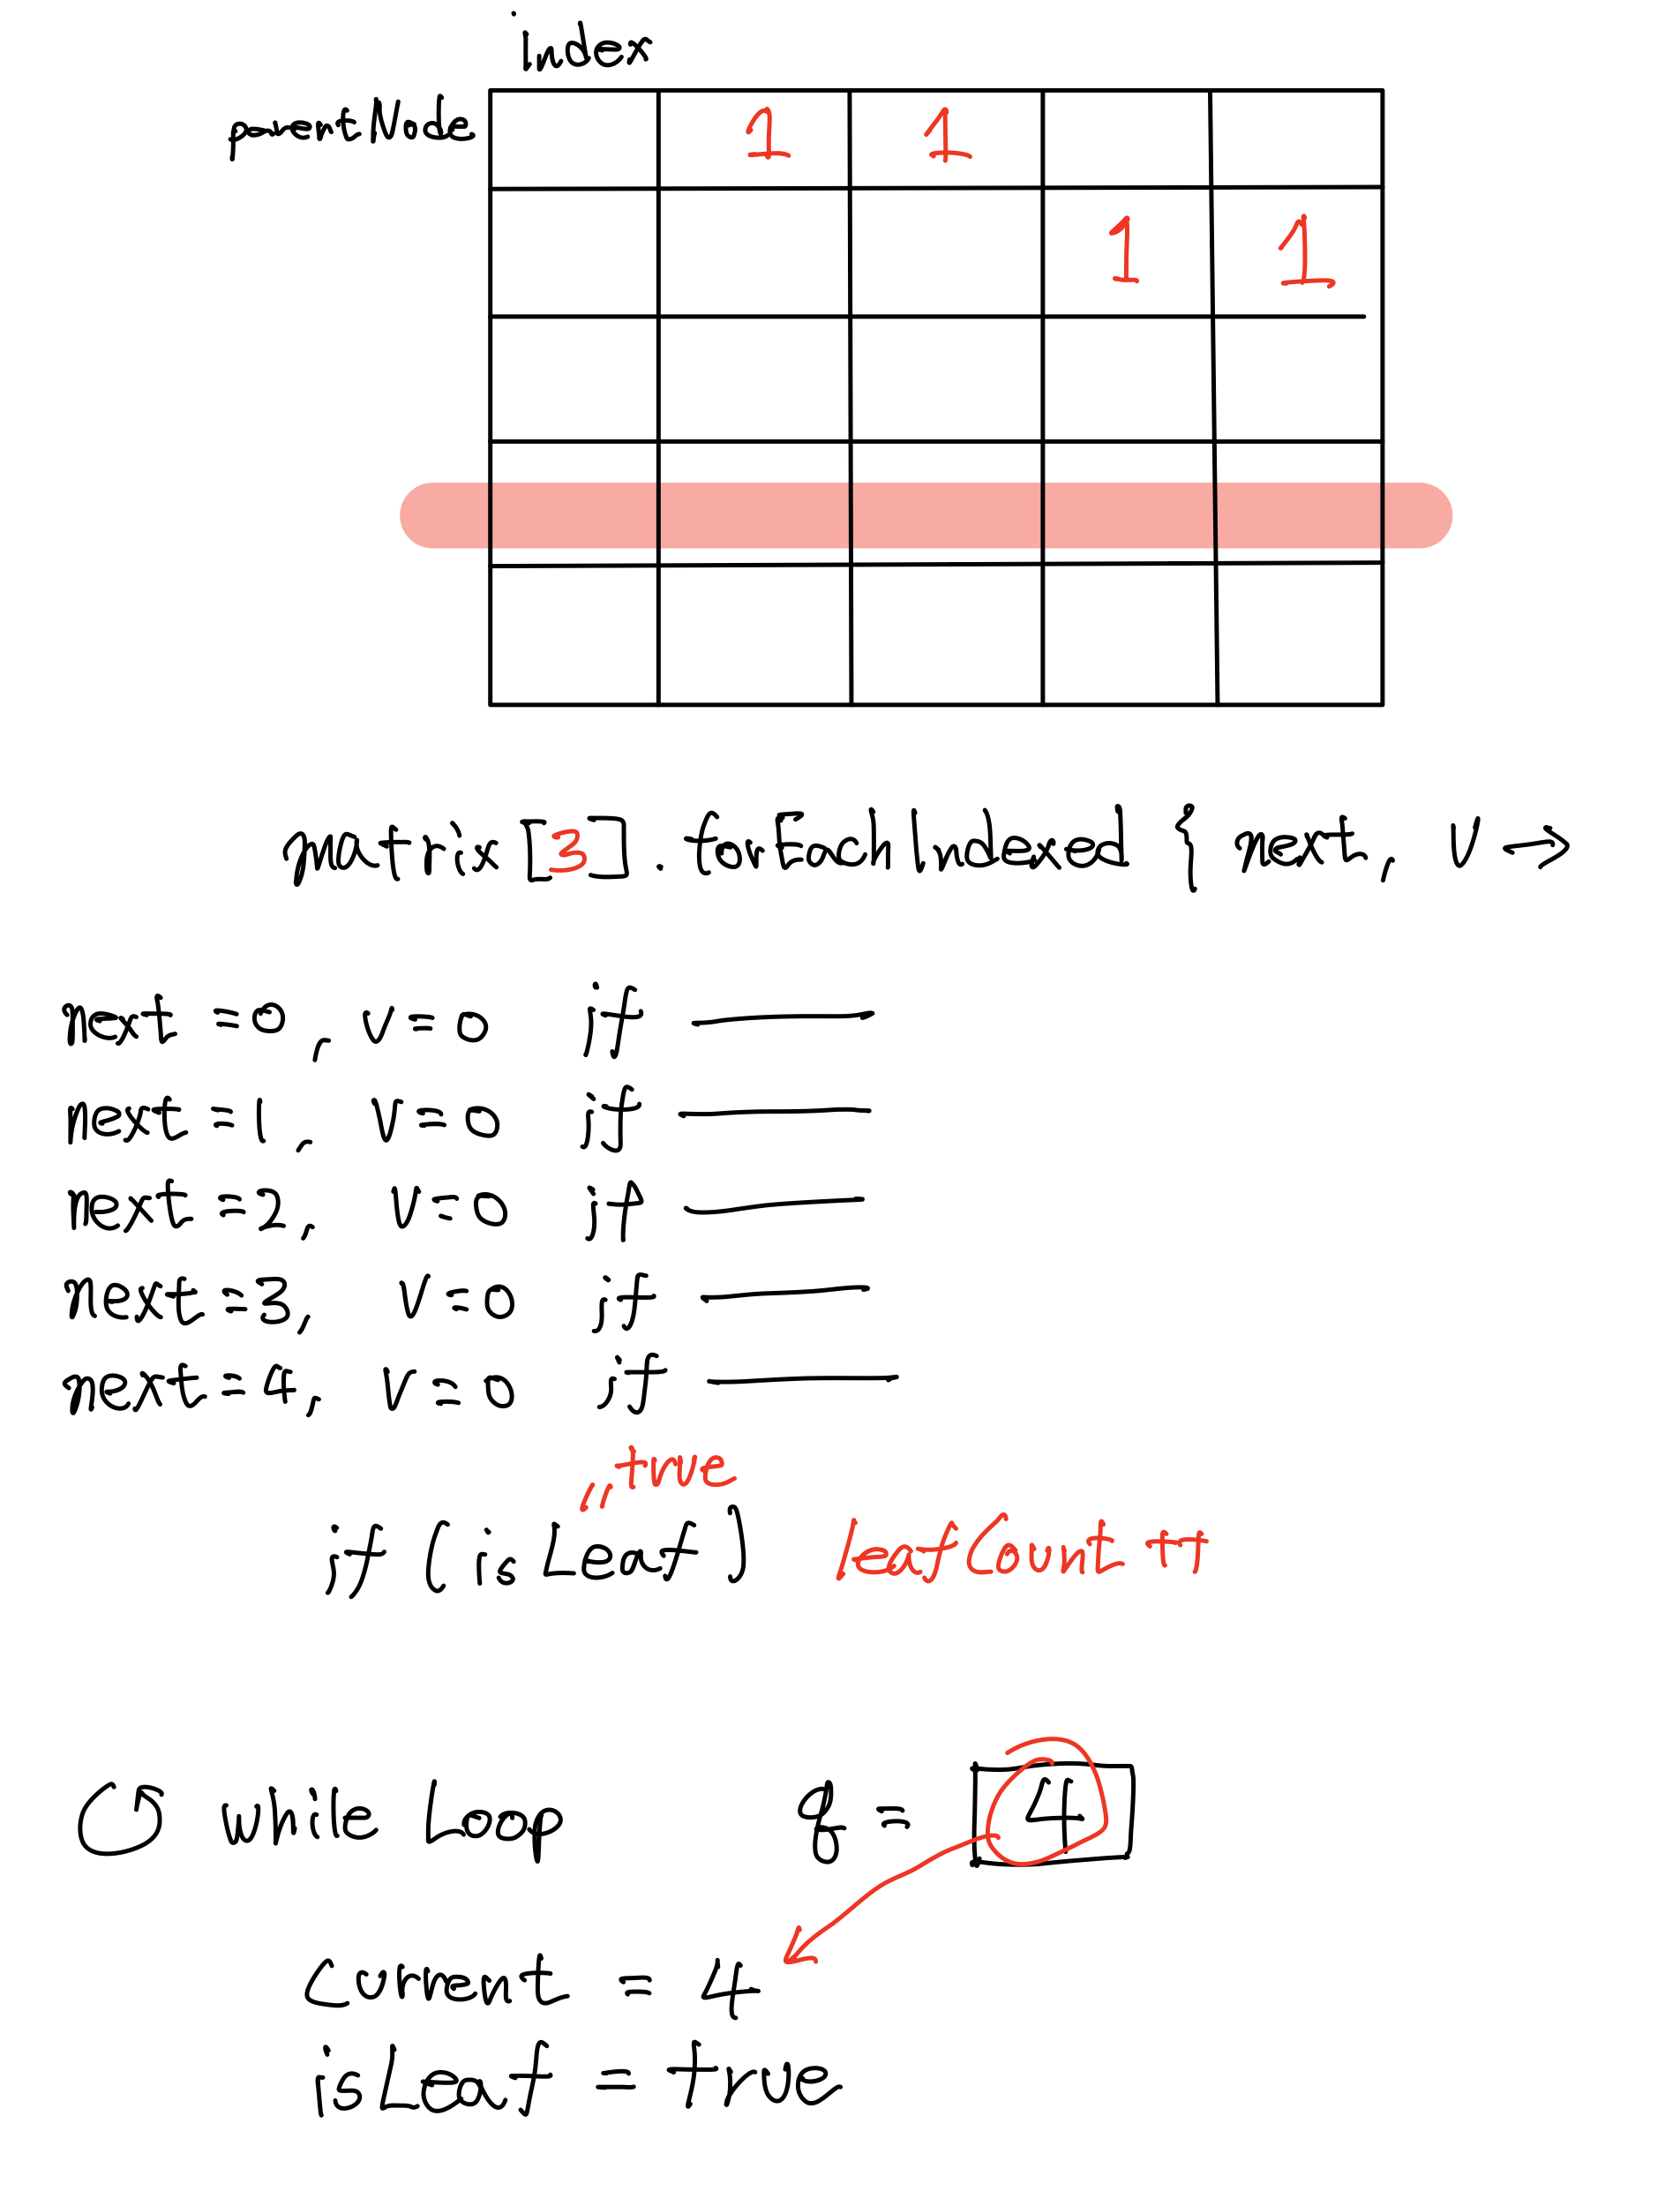 index
parentNode
1 1
1 1
matrix[3].forEachIndexed { next, v →
next = 0, v = 0 if
next = 1, v = 0 if
next = 2, v = 0 if
next = 3, v = 0 if
next = 4, v = 0 if
" true
if (isLeaf) leafCount ++
while Loop q = 4
Current = 4
isLeaf = true